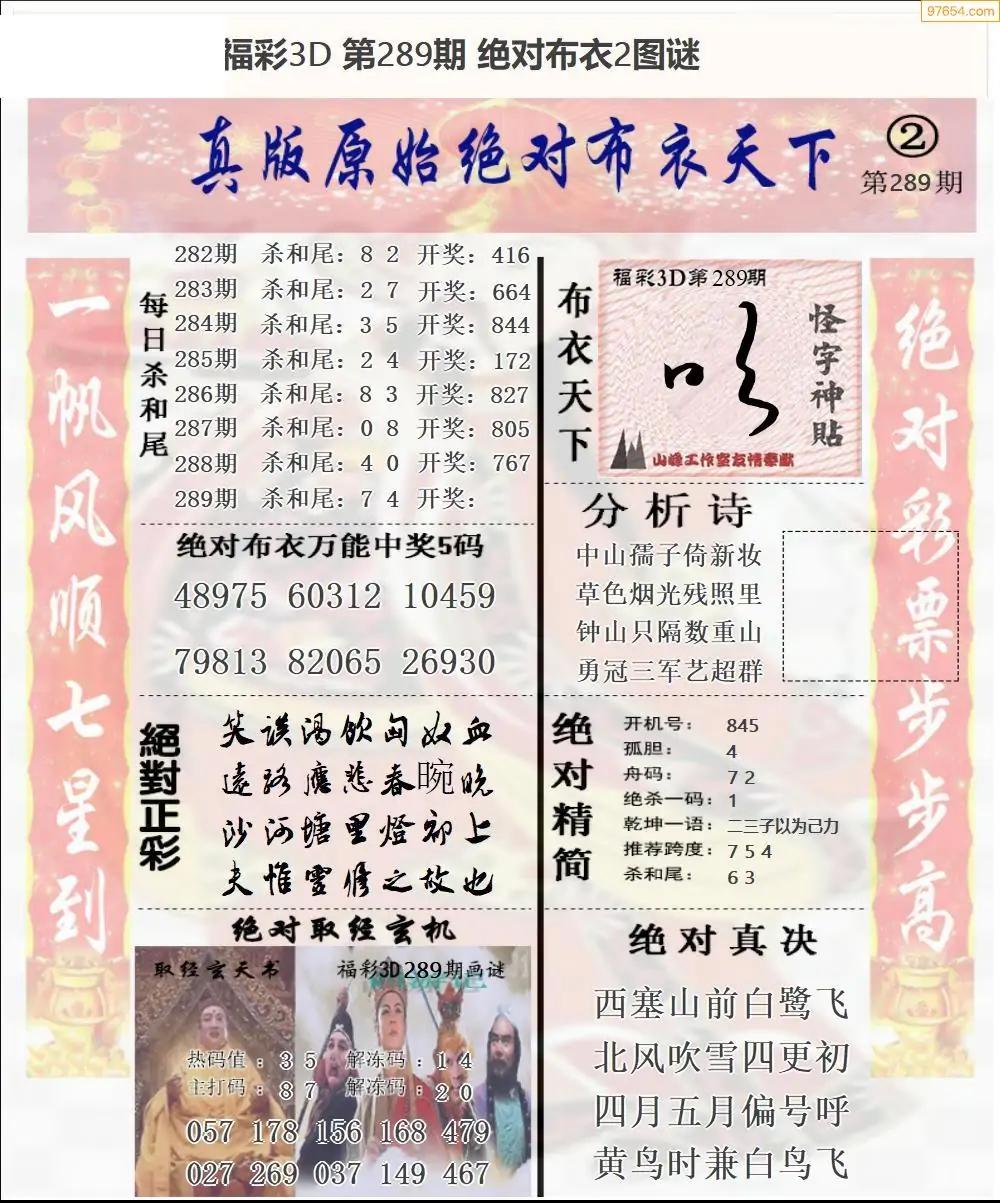 97654.com
福彩3D 第289期 绝对布衣2图谜
真版原始绝对布衣天下
②
第289期
一帆风顺七星到
每日杀和尾
282期 杀和尾：8 2 开奖：416
283期 杀和尾：2 7 开奖：664
284期 杀和尾：3 5 开奖：844
285期 杀和尾：2 4 开奖：172
286期 杀和尾：8 3 开奖：827
287期 杀和尾：0 8 开奖：805
288期 杀和尾：4 0 开奖：767
289期 杀和尾：7 4 开奖：
绝对布衣万能中奖5码
48975 60312 10459
79813 82065 26930
絕對正彩
笑谈渴飲匈奴血
遠路應悲春晼晚
沙河塘里燈初上
夫惟靈修之故也
绝对取经玄机
取经玄天书
福彩3D289期画谜
热码值：3 5 解冻码：1 4
主打码：8 7 解冻码：2 0
057 178 156 168 479
027 269 037 149 467
布衣天下
福彩3D第289期
怪字神貼
山峰工作室友情奉献
分析诗
中山孺子倚新妆
草色烟光残照里
钟山只隔数重山
勇冠三军艺超群
绝对精简
开机号：845
孤胆：4
舟码：7 2
绝杀一码：1
乾坤一语：二三子以为己力
推荐跨度：7 5 4
杀和尾：6 3
绝对真决
西塞山前白鹭飞
北风吹雪四更初
四月五月偏号呼
黄鸟时兼白鸟飞
绝对彩票步步高